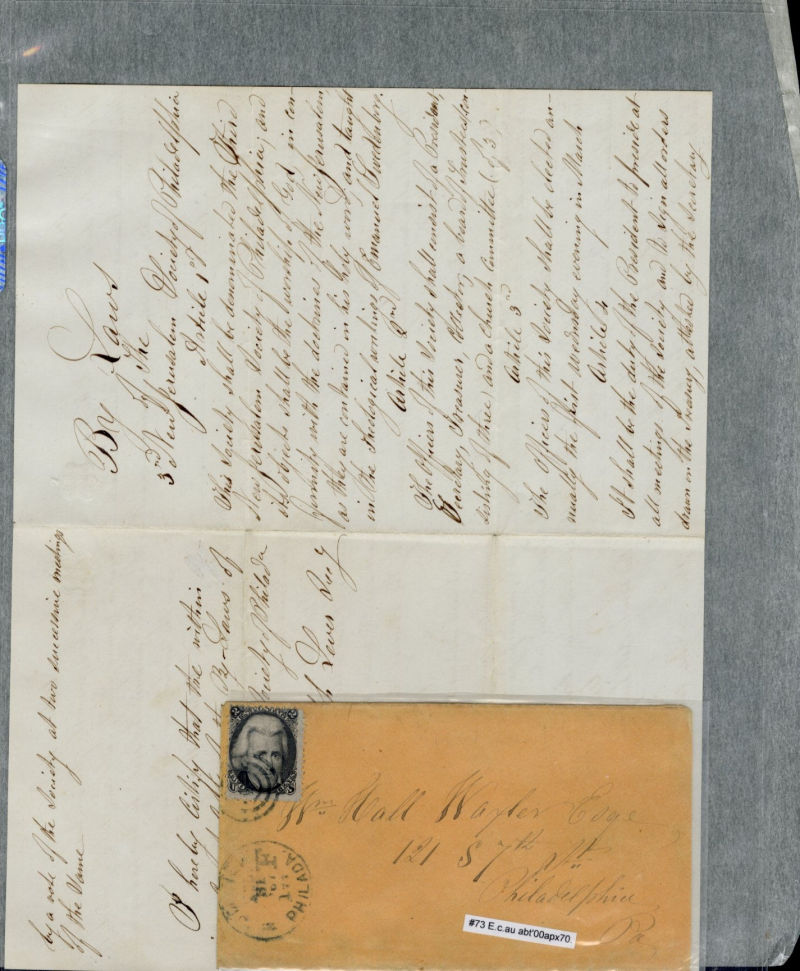 By Laws
of The
3rd New Jerusalem Society of Philadelphia
Article 1st
This Society shall be denominated the Third
New Jerusalem Society of Philadelphia, and
its objects shall be the worship of God in con-
formity with the doctrines of the New Jerusalem
as they are contained in his holy word, and taught
in the Theological writings of Emanuel Swedenborg.
Article 2nd
The Officers of this Society shall consist of a President,
Secretary, Treasurer, Collector, a board of Trustees con-
sisting of three, and a church Committee (of 3)
Article 3rd
The Officers of this Society shall be elected an-
nually the first Wednesday evening in March
Article 4
It shall be the duty of the President to preside at
all meetings of the Society and to sign all orders
drawn on the Treasury, attested by the Secretary
by a vote of the Society at two successive meetings
of the Same
I hereby Certify that the within
By-Laws of
Society of Philada
Secy
2 2
Wm Hall Waxler Esqr
121 S 7th St
Philadelphia
Pa
PHILADA.
#73 E.c.au abt'00apx70.